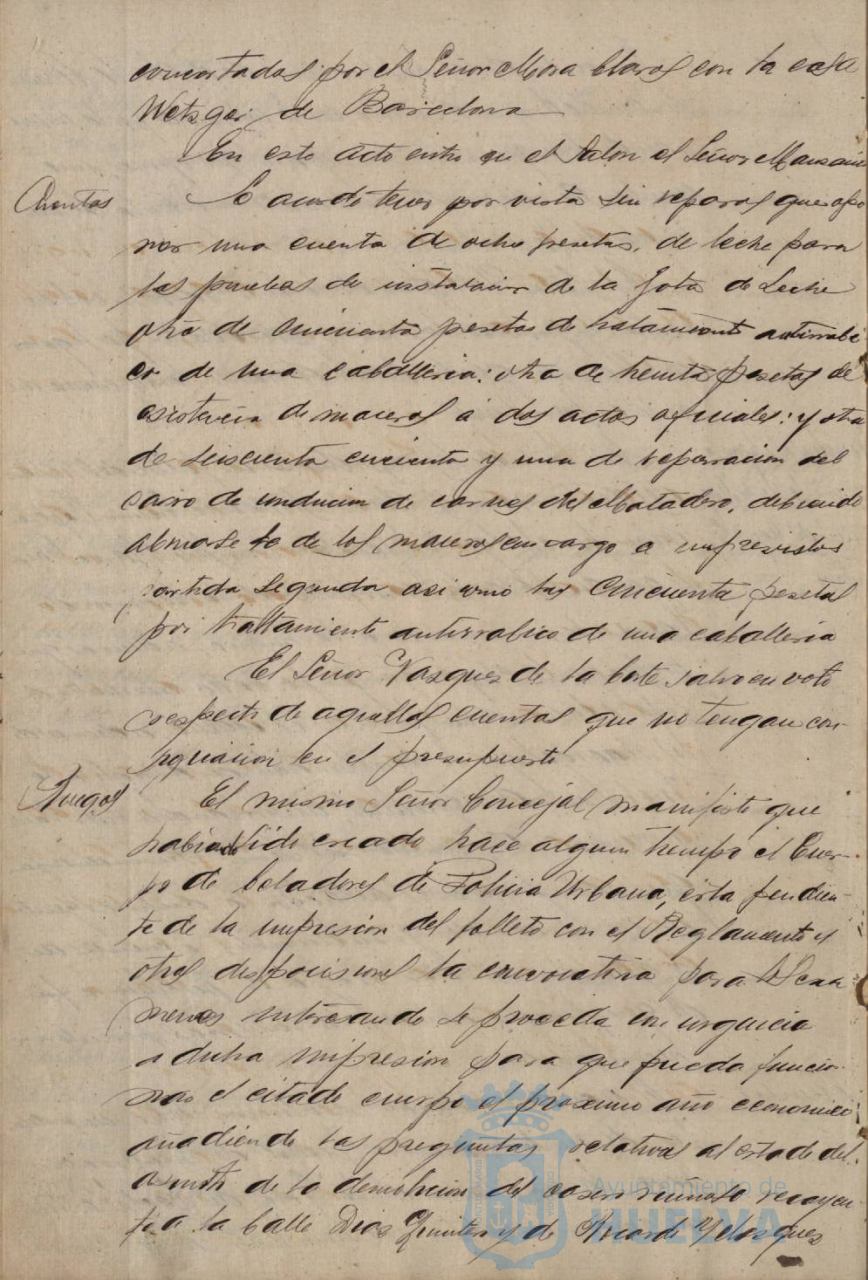 concertadas por el Señor Mora Claros con la casa
Metzger de Barcelona
En este acto entra en el salon el Señor
Cuentas
Se acuerda tener por vista sin reparos que opo
ner una cuenta de ocho pesetas, de leche para
las pruebas de instalacion de la Gota de Leche
otra de cincuenta pesetas de tratamiento antirrabi
co de una caballeria: otra de treinta pesetas de
asistencia de maceros á dos actos oficiales: y otra
de seiscienta cincuenta y una de reparacion del
carro de conducion de carnes del Matadero, debiendo
abonarse lo de los maceros con cargo a imprevistos
partida segunda asi como las cincuenta pesetas
por trattamiento antirrabico de una caballeria
El Señor Vasquez de la Corte salva su voto
respecto de aquellas cuentas que no tengan con
signacion en el presupuesto
Ruegos
El mismo Señor Concejal manifiesta que
habiendo sido creado hace algun tiempo el Cuer-
po de Celadores de Policia Urbana, está pendien-
te de la impresion del folleto con el Reglamento y
otras disposiciones la convocatoria para
menes interesando se proceda con urgencia
a dicha impresion para que pueda funcio-
nar el citado cuerpo el proximo año economico
añadiendo las preguntas relativas al estado del
asunto de la demolicion del caseron ruinoso recayen-
te a la Calle Dias Quintero y de Ricardo Velazquez
Ayuntamiento de
HUELVA